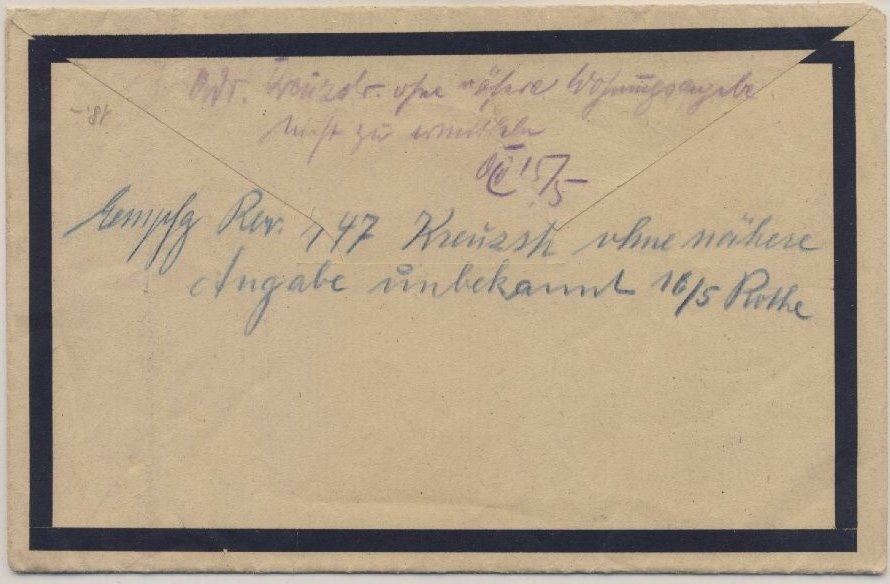 Adr. Kreuzstr. ohne nähere Wohnungsangabe
nicht zu ermitteln
15/5
-.81
Empfg Rev. 147 Kreuzstr ohne nähere
Angabe unbekannt 16/5 Rothe